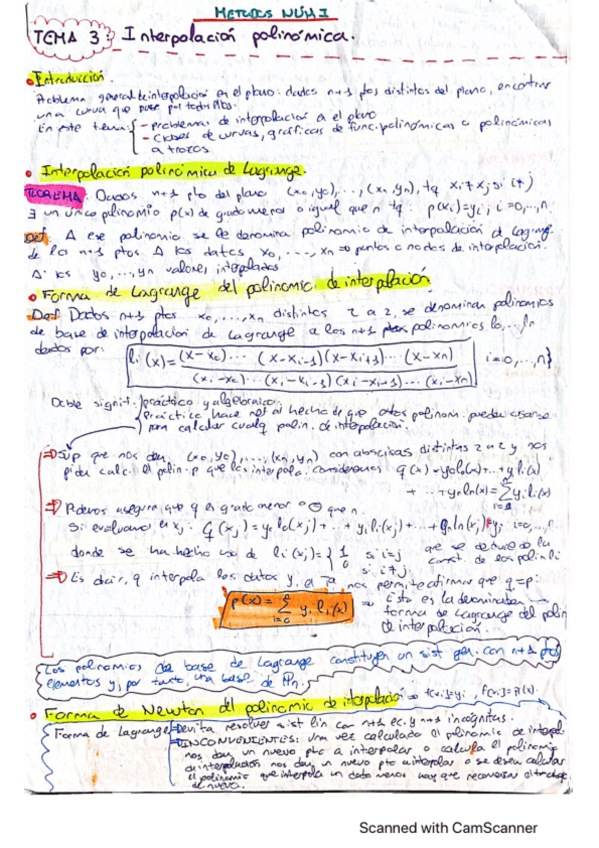 METODOS NÚM I
TEMA 3: Interpolación polinómica.
• Introducción.
Problema general de interpolación en el plano: dados n+1 ptos distintos del plano, encontrar
una curva que pase por todos ptos.
En este tema: - problemas de interpolación en el plano
- clases de curvas, gráficas de func. polinómicas o polinómicas
a trozos
• Interpolación polinómica de Lagrange.
TEOREMA: Dados n+1 pto del plano (x0,y0),..., (xn,yn), tq xi≠xj si i≠j
∃ un único polinomio p(x) de grado menor o igual que n tq: p(xi)=yi, i=0,..,n
Def: A ese polinomio se le denomina polinomio de interpolación de Lagrange
de los n+1 ptos. A los datos x0,..., xn => puntos o nodos de interpolación.
A los y0,...,yn valores interpolados
• Forma de Lagrange del polinomio de interpolación
Def Dados n+1 ptos x0,...,xn distintos 2 a 2, se denominan polinomios
de base de interpolación de Lagrange a los n+1 polinomios l0,..,ln
dados por: li(x)= (x-x0)... (x-xi-1)(x-xi+1)...(x-xn) i=0,...,n}
(xi-x0)...(xi-xi-1)(xi-xi+1)...(xi-xn)
Doble signif. práctico y algebraico:
práctico hace ref al hecho de que otros polinom. pueden usarse
para calcular cualq polin. de interpolación.
=> Sup que nos dan (x0,y0),...,(xn,yn) con abscisas distintas 2 a 2 y nos
piden calc. el polin. p que los interpola. consideramos q(x)=y0l0(x)+...+yili(x)
+...+ynln(x)=∑yili(x)
=> Podemos asegurar que q es grado menor o = que n.
Si evaluamos en xj: q(xj)=y0l0(xj)+..+yili(xj)+...+ynln(xj)=yj i=0,...,n
donde se ha hecho uso de li(xj)={1 si i=j
0 si i≠j
que se deduce de la
const. de los polin li
=> Es decir, q interpola los datos y, el Ta nos permite afirmar que q=p:
p(x)= ∑ yi li(x)
i=0
=> Esta es la denominada
forma de Lagrange del polin
de interpolación.
Los polinomios de base de Lagrange constituyen un sist gen. con n+1
elementos y, por tanto, una base de Pn.
• Forma de Newton del polinomio de interpolación
Forma de Lagrange evita resolver sist lin con n+1 ec. y n+1 incógnitas.
INCONVENIENTES: Una vez calculado el polinomio de interpol.
nos dan un nuevo pto a interpolar o calcula el polinomio
de interpolación nos dan un nuevo pto a interpolar o se desea calcular
el polinomio que interpola un dato menos hay que recomenzar el trabajo
de nuevo.
Scanned with CamScanner